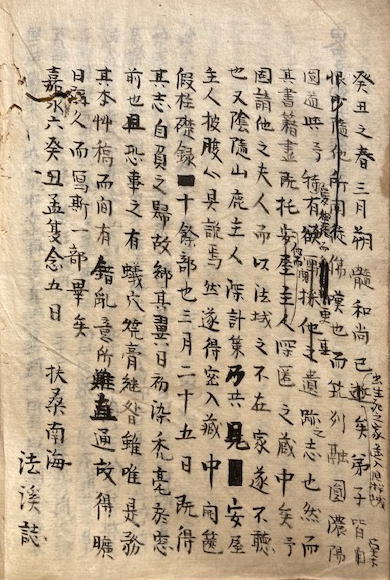 癸丑之春三月朔髓和尚已逝矣弟子皆有
恨少隨他所用徒佛漠也而筑列融圓濃陽
圓益與予特有欲探他之遺跡之志也然而
其書籍盡既托安屋主人深匿之藏中矣予
固請他之夫人而以法域之不在家遂不聽
也又陰隨山鹿主人深計策乃共見安屋
主人披腹心具談焉然遂得密入藏中開篋
假柱礎録十餘部也三月二十五日既得
其志自負之歸故鄉其翼日而染禿毫於窓
前也且恐事之有蟻穴焚膏継晷雖唯是務
其本艸稿而間有錯乱意所難直通故得曠
日彌久而寫斯一部畢矣
嘉永六癸丑孟夏念五日 扶桑南海
法溪誌